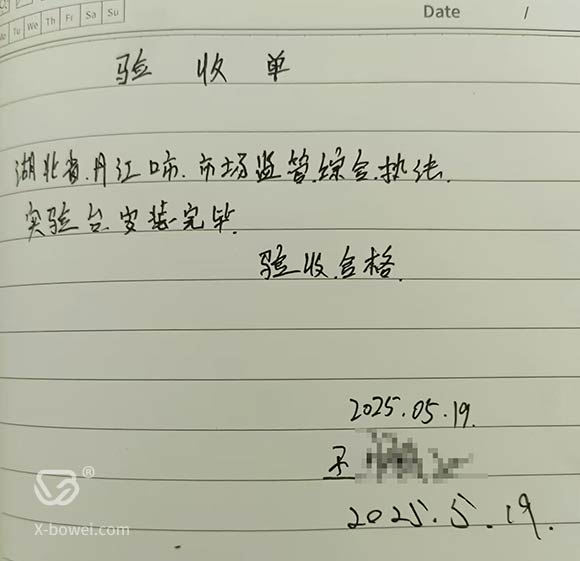 Tu We Th Fr Sa Su
Date /
验收单
湖北省丹江口市.市场监管综合执法.
实验台安装完毕.
验收合格.
2025.05.19.
王
2025.5.19.
®
X-bowei.com